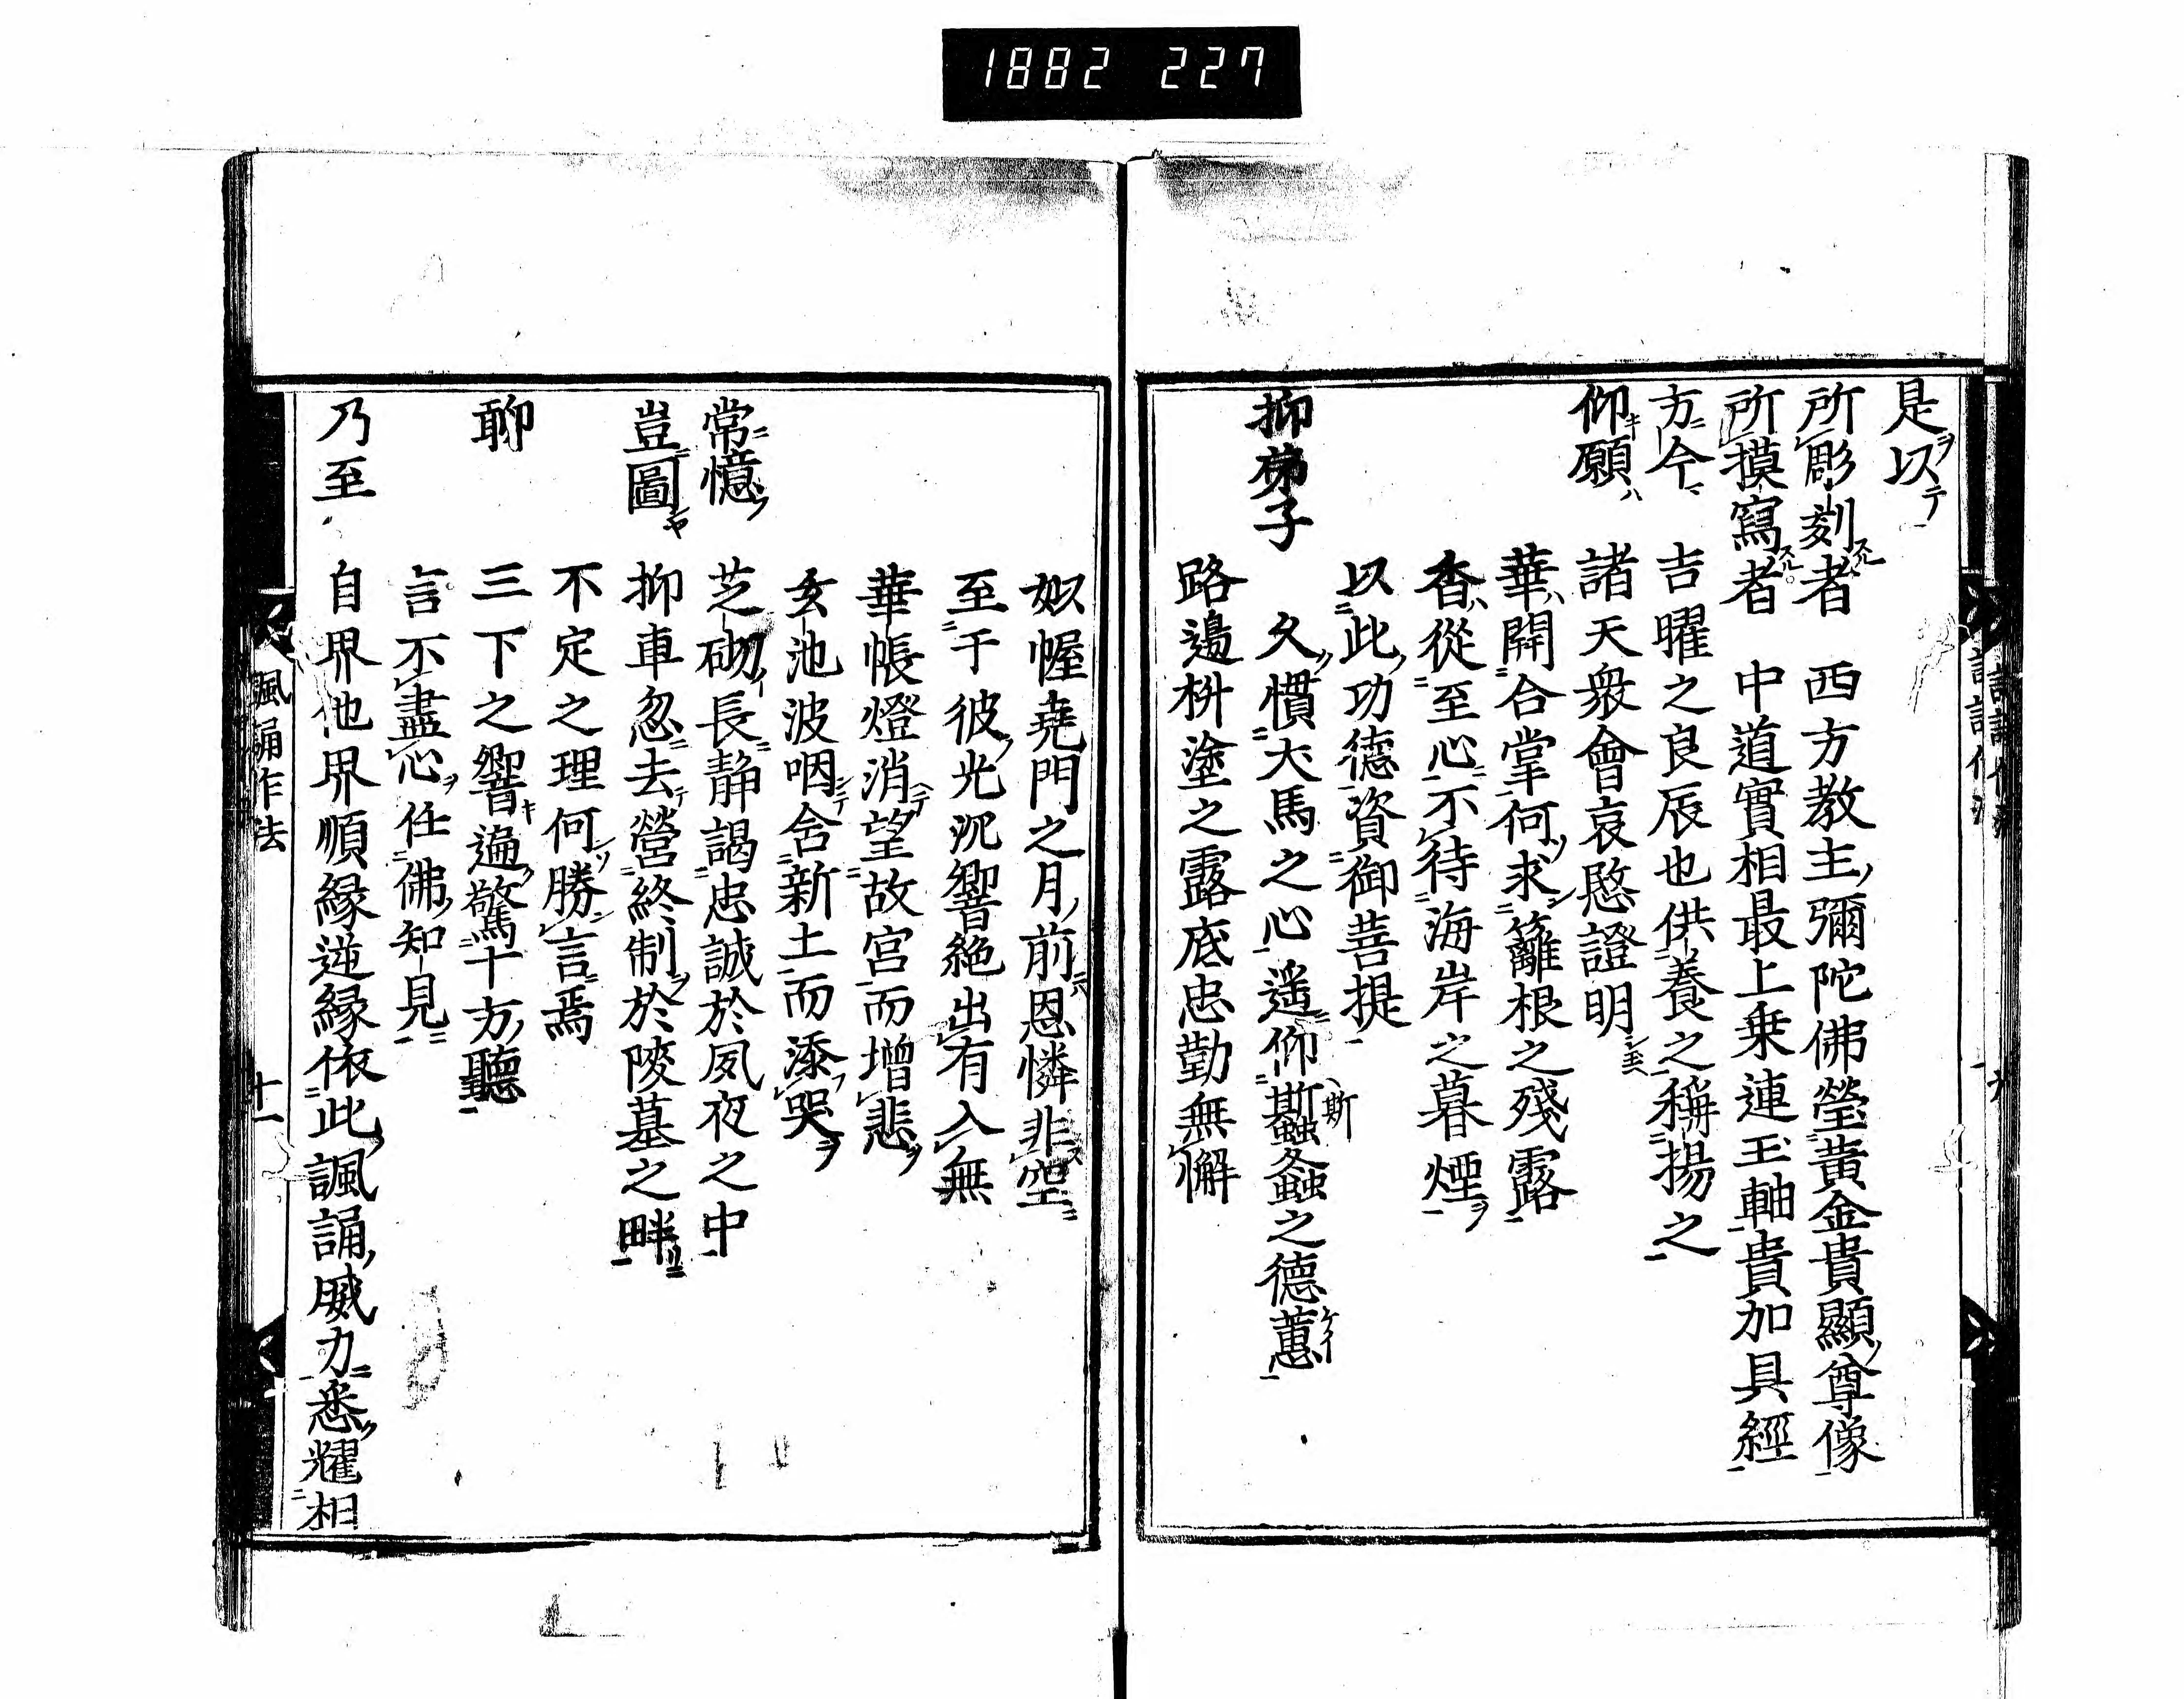 1882 227
是以ヲテ
所彫刻者 西方教主彌陀佛瑩黄金貴顯尊像
所摸寫者 中道實相最上乗連玉軸貴加具經
方今 吉曜之良辰也供養之稱揚之
仰願 諸天衆會哀愍證明
華開合掌何求籬根之殘露
香從至心不待海岸之暮煙
以此功德資御菩提
抑弟子 久慣犬馬之心遥仰螽斯之德蕙
路邉枡塗之露底忠勤無懈
幄堯門之月前恩憐非空
至于彼光沉響絶出有入無
華帳燈消望故宮而增悲
玄池波咽含新土而添哭
常憶 芝砌長静謁忠誠於夙夜之中
豈圖 抑車忽去營終制於陵墓之畔
不定之理何勝言焉
聊 三下之響遍驚十方聽
言不盡心任佛知見
乃至 自界他界順縁逆縁依此諷誦威力悉耀相
諷誦作法 十一